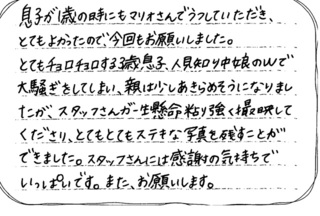 息子が1歳の時にもマリオさんでうつしていただき、
とてもよかったので、今回もお願いしました。
とてもチョロチョロする3歳息子、人見知り中娘のWで
大騒ぎをしてしまい、親は少しあきらめそうになりまし
たが、スタッフさんが一生懸命粘り強く撮映して
くださり、とてもとてもステキな写真を残すことが
できました。スタッフさんには感謝の気持ちで
いっぱいです。また、お願いします。